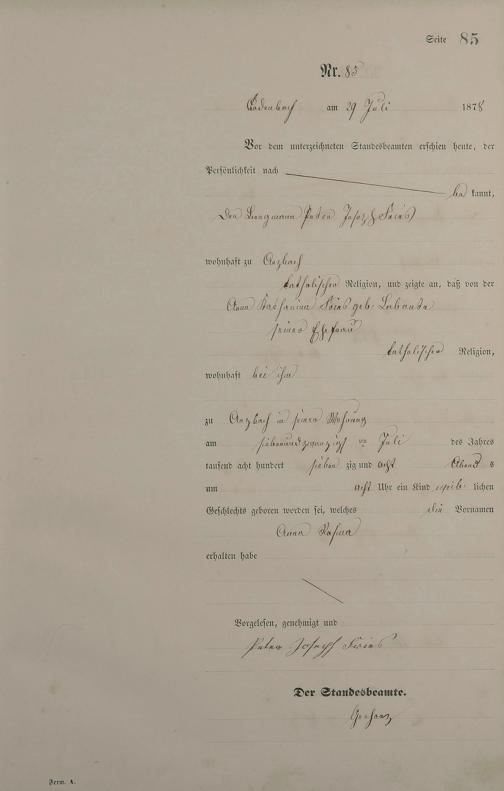 Seite 85
Nr. 85
am 29 Juli 1878
Vor dem unterzeichneten Standesbeamten erschien heute, der
Persönlichkeit nach
be kannt,
Den Bergmann Peter Joseph Fries
wohnhaft zu Anzbach
katholischer Religion, und zeigte an, daß von der
Anna Katharina Fries geb.
seiner Ehefrau
katholischer Religion,
wohnhaft bei ihm
zu Anzbach in seiner Wohnung
am siebenundzwanzigsten Juli des Jahres
tausend acht hundert sieben zig und acht Abend s
um acht Uhr ein Kind weib lichen
Geschlechts geboren worden sei, welches die Vornamen
Anna
erhalten habe
Vorgelesen, genehmigt und
Peter Joseph Fries
Der Standesbeamte.
Form. A.